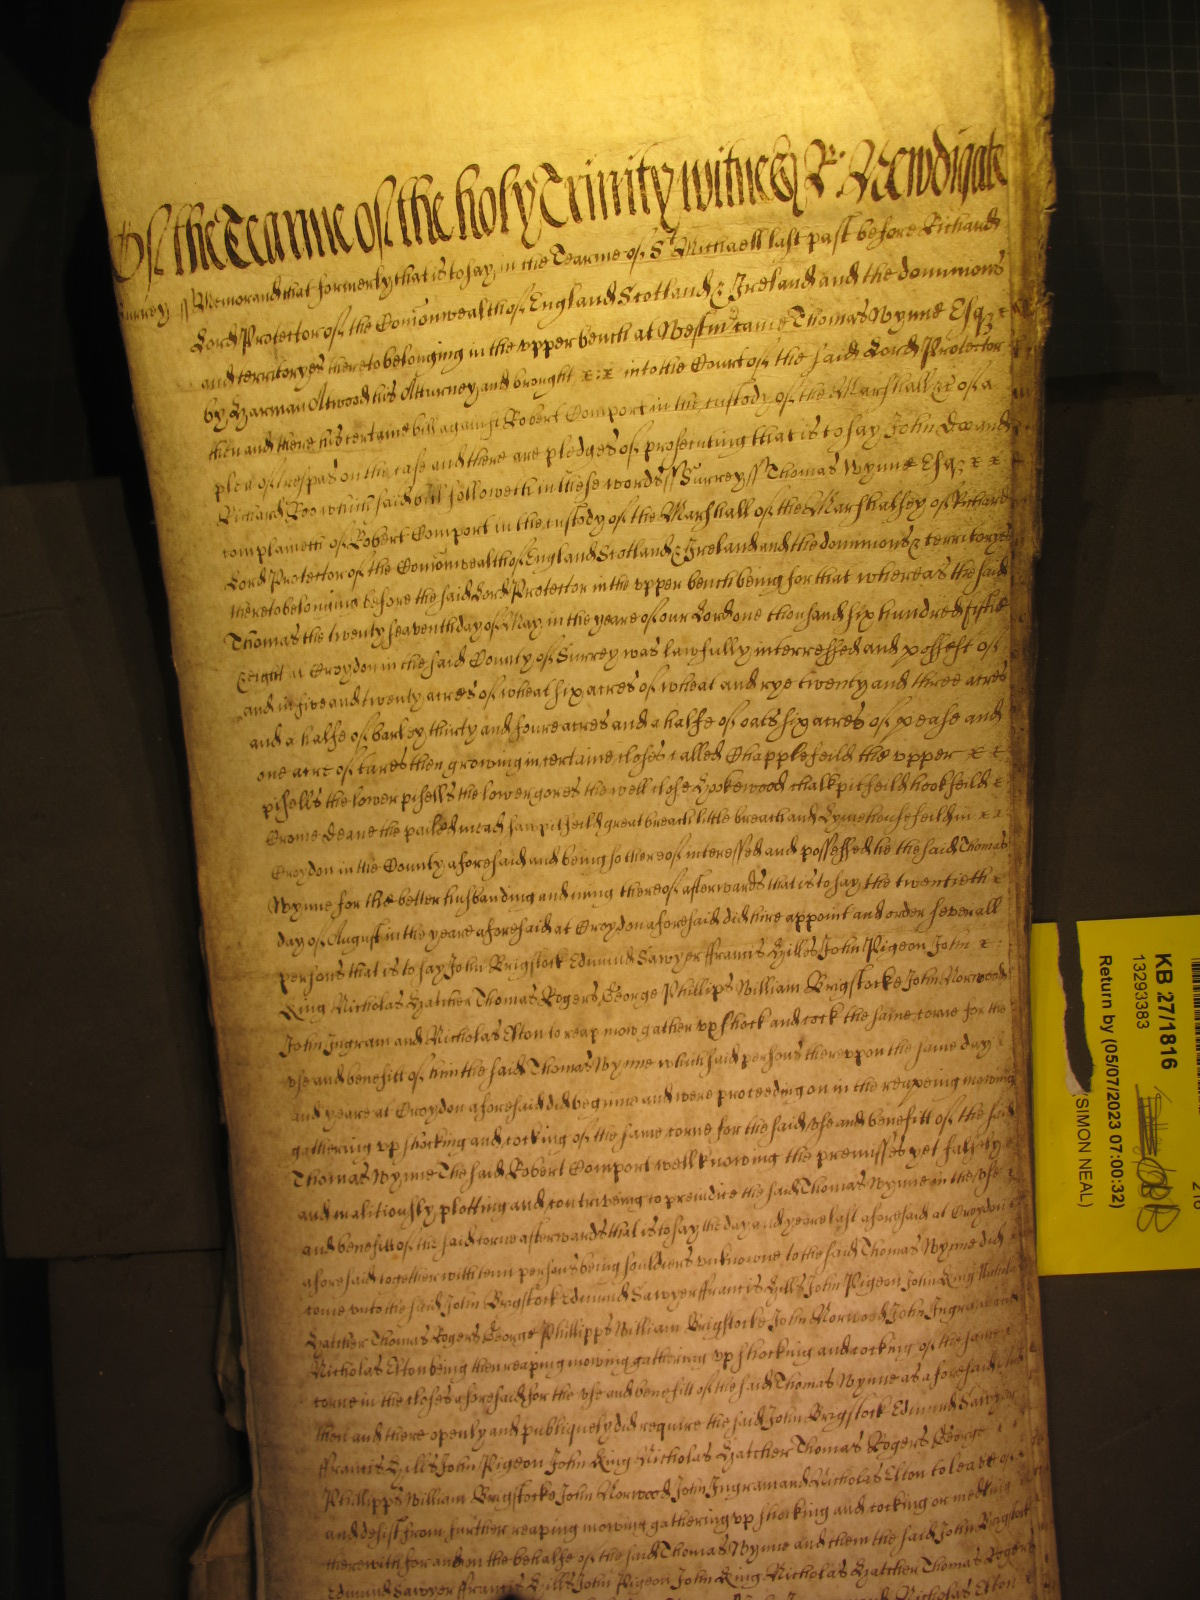 Of the Tearme of the holy Trinity witnes R: Newdigate
Surrey ss Memorand that formerly that is to say in the Tearme of St Michaell last past before Richard
Lord Protector of the Comonwealth of England Scotland & Ireland and the dominions
and territoryes thereto belonging in the vpper bench at Westmr came Thomas Wynne Esqz
by Harman Atwood his Atturney and brought x:x into the Court of the said Lord Protector
then and there his certaine bill against Robert Comport in the custody of the Marshall &c of a
plea of trespas on the case and there are pledges of prosecuting that is to say John Doe and
Richard Roo which said bill followeth in these words ss Surrey ss Thomas Wynne Esqz x x
complaineth of Robert Comport in the custody of the Marshall of the Marshalsey of Richard
Lord Protector of the Comonwealth of England Scotland & Ireland and the dominions & territoryes
thereto belonging before the said Lord Protector in the vpper bench being for that whereas the said
Thomas the twenty seaventh day of May in the yeare of our Lord one thousand six hundred fiftie
& eight at Croydon in the said County of Surrey was lawfully interressed and possest of
and in five and twenty acres of wheat six acres of wheat and rye twenty and three acres
and a halfe of barley thirty and foure acres and a halfe of oats six acres of pease and
one acre of tares then growing in certaine closes called Chapplefeild the vpper x x
pisells the lower pisells the lower gores the well close Hokewood chalkpitfeild hookfeild x
Crome deane the pailed mead sawpitfeild great breach little breach and Lymehousefeild in x x
Croydon in the County aforesaid and being so thereof interessed and possessed he the said Thomas
Wynne for the better husbanding and inning thereof afterwards that is to say the twentieth x
day of August in the yeare aforesaid at Croydon aforesaid did hire appoint and order severall
persons that is to say John Brigstock Edmund Sawyer ffrancis Hilles John Pigeon John x :
King Nicholas Hatcher Thomas Rogers George Phillips William Brigstocke John Norwood
John Ingram and Nicholas Elton to reap mow gather vp shock and cock the same corne for the
vse and benefitt of him the said Thomas Wynne which said persons therevpon the same day
and yeare at Croydon aforesaid did beginne and were proceeding on in the reapeing mowing
gathering vp shocking and cocking of the same corne for the said vse and benefitt of the said
Thomas Wynne The said Robert Comport well knowing the premisses yet falsely
and malitiously plotting and contriveing to preiudice the said Thomas Wynne in the vse
and benefitt of the said corne afterwards that is to say the day and yeare last aforesaid at Croydon
aforesaid together with tenn persons being souldiers vnknowne to the said Thomas Wynne did
come vnto the said John Brigstock Edmund Sawyer ffrancis Hills John Pigeon John King Nicholas
Hatcher Thomas Rogers George Phillipps William Brigstocke John Norwood John Ingram and
Nicholas Elton being then reaping mowing gathering vp shocking and cocking of the same
corne in the closes aforesaid for the vse and benefitt of the said Thomas Wynne as aforesaid
then and there openly and publiquely did require the said John Brigstock Edmund Sawyer
ffrancis Hills John Pigeon John King Nicholas Hatcher Thomas Rogers George
Phillipps William Brigstocke John Norwood John Ingram and Nicholas Elton to leave of
and desist from further reaping mowing gathering vp shocking and cocking or medling
therewith for and on the behalfe of the said Thomas Wynne and them the said John Brigstock
Edmund Sawyer ffrancis Hills John Pigeon John King Nicholas Hatcher Thomas Rogers
Nicholas Elton
KB 27/1816
13293383
Return by (05/07/2023 07:00:32)
(SIMON NEAL)